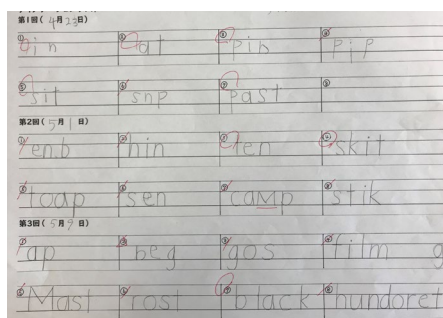 第1回(4月23日)
① in ② at ③ pin ④ pip
⑤ sit ⑥ snp ⑦ past ⑧
第2回(5月1日)
① en.b ② hin ③ ten ④ skit
⑤ toap ⑥ sen ⑦ camp ⑧ stik
第3回(5月9日)
① ap ② beg ③ gos ④ film g
⑤ Mast ⑥ rost ⑦ black ⑧ hundoret